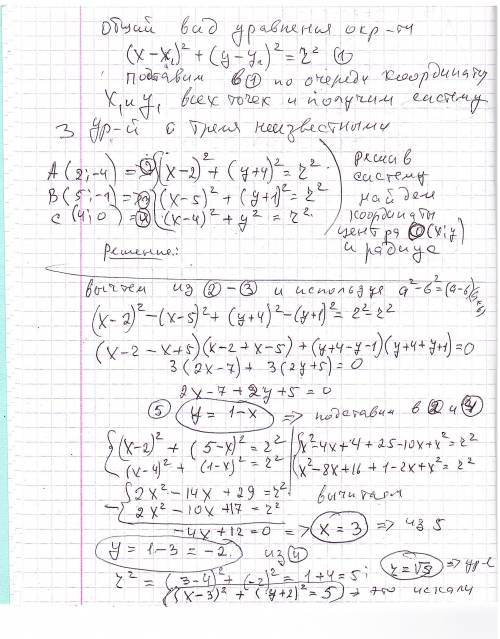 Общий вид уравнения окр-ти
(x-x₁)² + (y-y₁)² = r² ①
подставим в ① по очереди координаты
x₁ и y₁ всех точек и получим систему
3 ур-й с тремя неизвестными
A(2;-4) => ② (x-2)² + (y+4)² = r²
B(5;-1) => ③ (x-5)² + (y+1)² = r²
C(4;0) => ④ (x-4)² + y² = r²
решив
систему
найдем
координаты
центра O(x;y)
и радиус
Решение:
вычтем из ② - ③ и используя a²-b²=(a-b)(a+b)
(x-2)² - (x-5)² + (y+4)² - (y+1)² = r²-r²
(x-2-x+5)(x-2+x-5) + (y+4-y-1)(y+4+y+1)=0
3(2x-7) + 3(2y+5) = 0
2x-7+2y+5=0
⑤ y = 1-x => подставим в ② и ④
(x-2)² + (5-x)² = r² | x²-4x+4+25-10x+x² = r²
(x-4)² + (1-x)² = r² | x²-8x+16+1-2x+x² = r²
2x²-14x+29 = r²
- 2x²-10x+17 = r² вычитаем
-4x+12=0 => x=3 => из 5
y = 1-3 = -2. из ④
r² = (3-4)² + (-2)² = 1+4=5; r=√5 => ур-е
(x-3)² + (y+2)² = 5 это искали